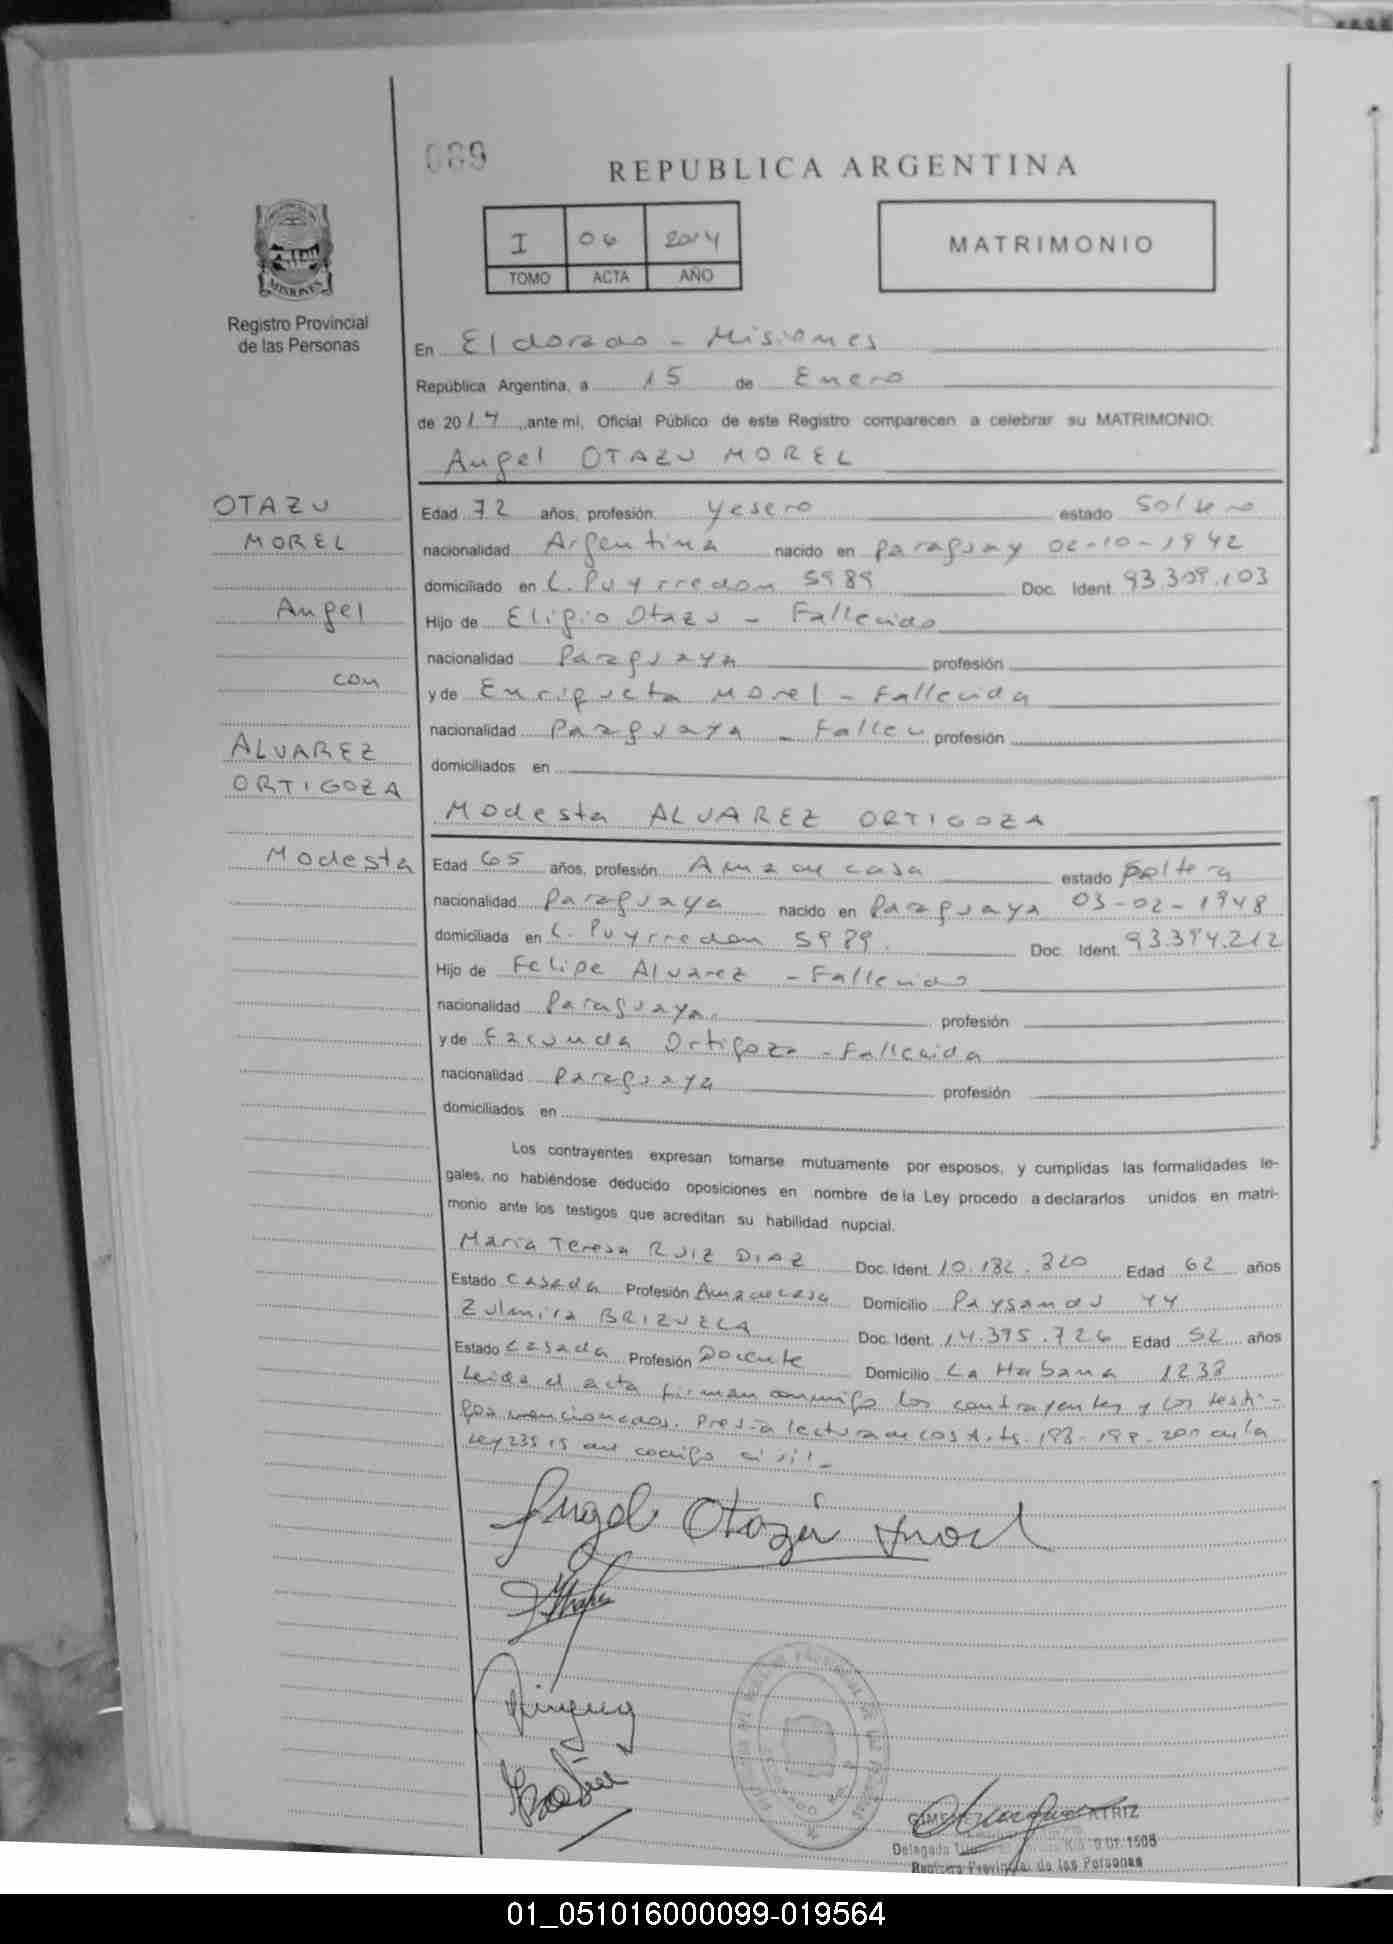 089
REPUBLICA ARGENTINA
I 06 2014
TOMO ACTA AÑO
MATRIMONIO
MISIONES
Registro Provincial
de las Personas
En Eldorado - Misiones
República Argentina, a 15 de Enero
de 2014, ante mi, Oficial Público de este Registro comparecen a celebrar su MATRIMONIO:
Angel OTAZU MOREL
OTAZU
MOREL
Angel
con
ALVAREZ
ORTIGOZA
Modesta
Edad 72 años, profesión Yesero estado Soltero
nacionalidad Argentina nacido en Paraguay 02-10-1942
domiciliado en L. Puyrredon 5989 Doc. Ident. 93.309.103
Hijo de Eligio Otazu - Fallecido
nacionalidad Paraguaya profesión
y de Enriqueta Morel - Fallecida
nacionalidad Paraguaya - Fallec profesión
domiciliados en
Modesta ALVAREZ ORTIGOZA
Edad 65 años, profesión Ama de casa estado Soltera
nacionalidad Paraguaya nacido en Paraguaya 03-02-1948
domiciliada en L. Puyrredon 5989. Doc. Ident. 93.394.212
Hijo de Felipe Alvarez - Fallecido
nacionalidad Paraguaya. profesión
y de Facunda Ortigoza - Fallecida
nacionalidad Paraguaya profesión
domiciliados en
Los contrayentes expresan tomarse mutuamente por esposos, y cumplidas las formalidades le-
gales, no habiéndose deducido oposiciones en nombre de la Ley procedo a declararlos unidos en matri-
monio ante los testigos que acreditan su habilidad nupcial.
Maria Teresa RUIZ DIAZ Doc. Ident. 10.182.320 Edad 62 años
Estado Casada Profesión Ama de casa Domicilio Paysandu 44
Zulmira BRIZUELA Doc. Ident. 14.395.726 Edad 52 años
Estado Casada Profesión Docente Domicilio La Habana 1238
Leida el acta firman conmigo los contrayentes y los testi-
gos mencionados. Previa lectura de los Arts. 198-199-200 de la
Ley 23515 del codigo civil -
Angel Otazu Morel
Delegada
Registro Provincial de las Personas
01_051016000099-019564